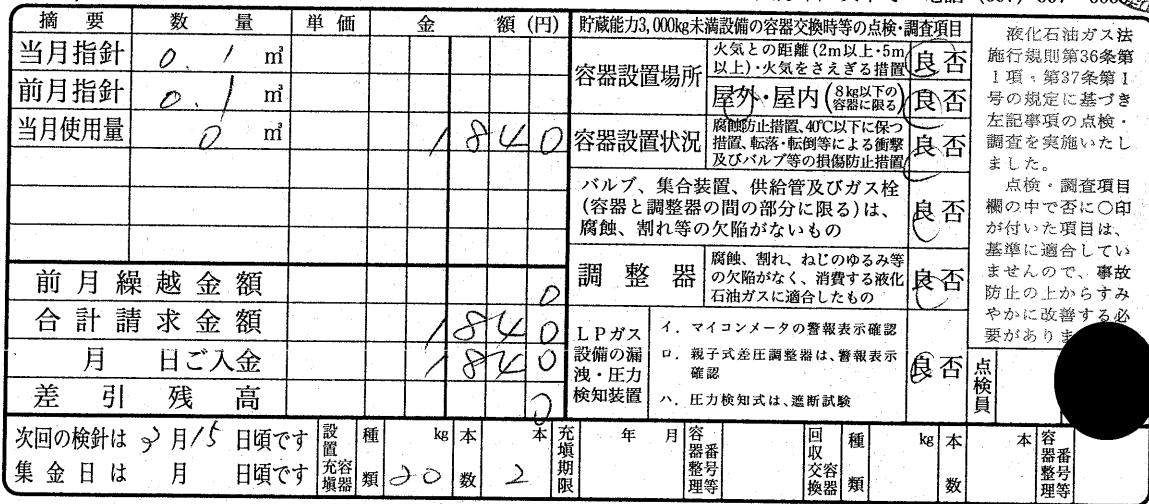 摘要 数量 単価 金額(円)
当月指針 0.1 ㎥
前月指針 0.1 ㎥
当月使用量 0 ㎥ 1840
前月繰越金額 0
合計請求金額 1840
月 日ご入金 1840
差引残高 0
貯蔵能力3,000kg未満設備の容器交換時等の点検・調査項目
容器設置場所
火気との距離(2m以上・5m
以上)・火気をさえぎる措置
良否
屋外・屋内(8kg以下の
容器に限る)
良否
容器設置状況
腐蝕防止措置、40℃以下に保つ
措置、転落・転倒等による衝撃
及びバルブ等の損傷防止措置
良否
バルブ、集合装置、供給管及びガス栓
(容器と調整器の間の部分に限る)は、
腐蝕、割れ等の欠陥がないもの
良否
調整器
腐蝕、割れ、ねじのゆるみ等
の欠陥がなく、消費する液化
石油ガスに適合したもの
良否
LPガス
設備の漏
洩・圧力
検知装置
イ.マイコンメータの警報表示確認
ロ.親子式差圧調整器は、警報表示
確認
ハ.圧力検知式は、遮断試験
良否
液化石油ガス法
施行規則第36条第
1項・第37条第1
号の規定に基づき
左記事項の点検・
調査を実施いたし
ました。
点検・調査項目
欄の中で否に○印
が付いた項目は、
基準に適合してい
ませんので、事故
防止の上からすみ
やかに改善する必
要がありま
点検員
次回の検針は 3月15日頃です
集金日は 月 日頃です
設置充填容器 種類 kg 20 本数 本 2
充填期限 年 月
容器番号整理等
回収交換容器 種類 kg 本数 本
容器番号整理等